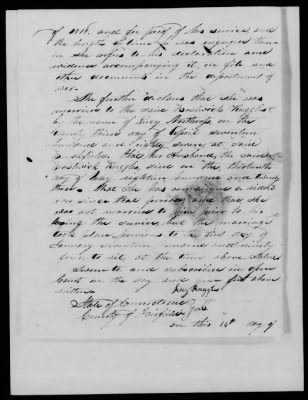 of 1818. and for proof of his service, and
the length of time he was engaged therein
she refers to his declaration and
evidence accompanying it, on file and
other documents in the department of
war.
She further declares that she was
married to the said Bostwick Ruggles
by the name of Lucy Northrop on the
twenty third day of April seventeen
hundred and eighty seven at said
Brookfield. That her Husband, the said
Bostwick Ruggles, died on the
day of May eighteen hundred and twenty
three. That she has remained a widow
ever since that period and that she
was not married to him prior to his
leaving the service, but the marriage
took place previous to the first day of
January seventeen hundred and ninety
four to wit, at the time above stated
Sworn to and subscribed in open
Court on the day and year first above
written Lucy Ruggles
State of Connecticut
County of Fairfield
on this 14th day of